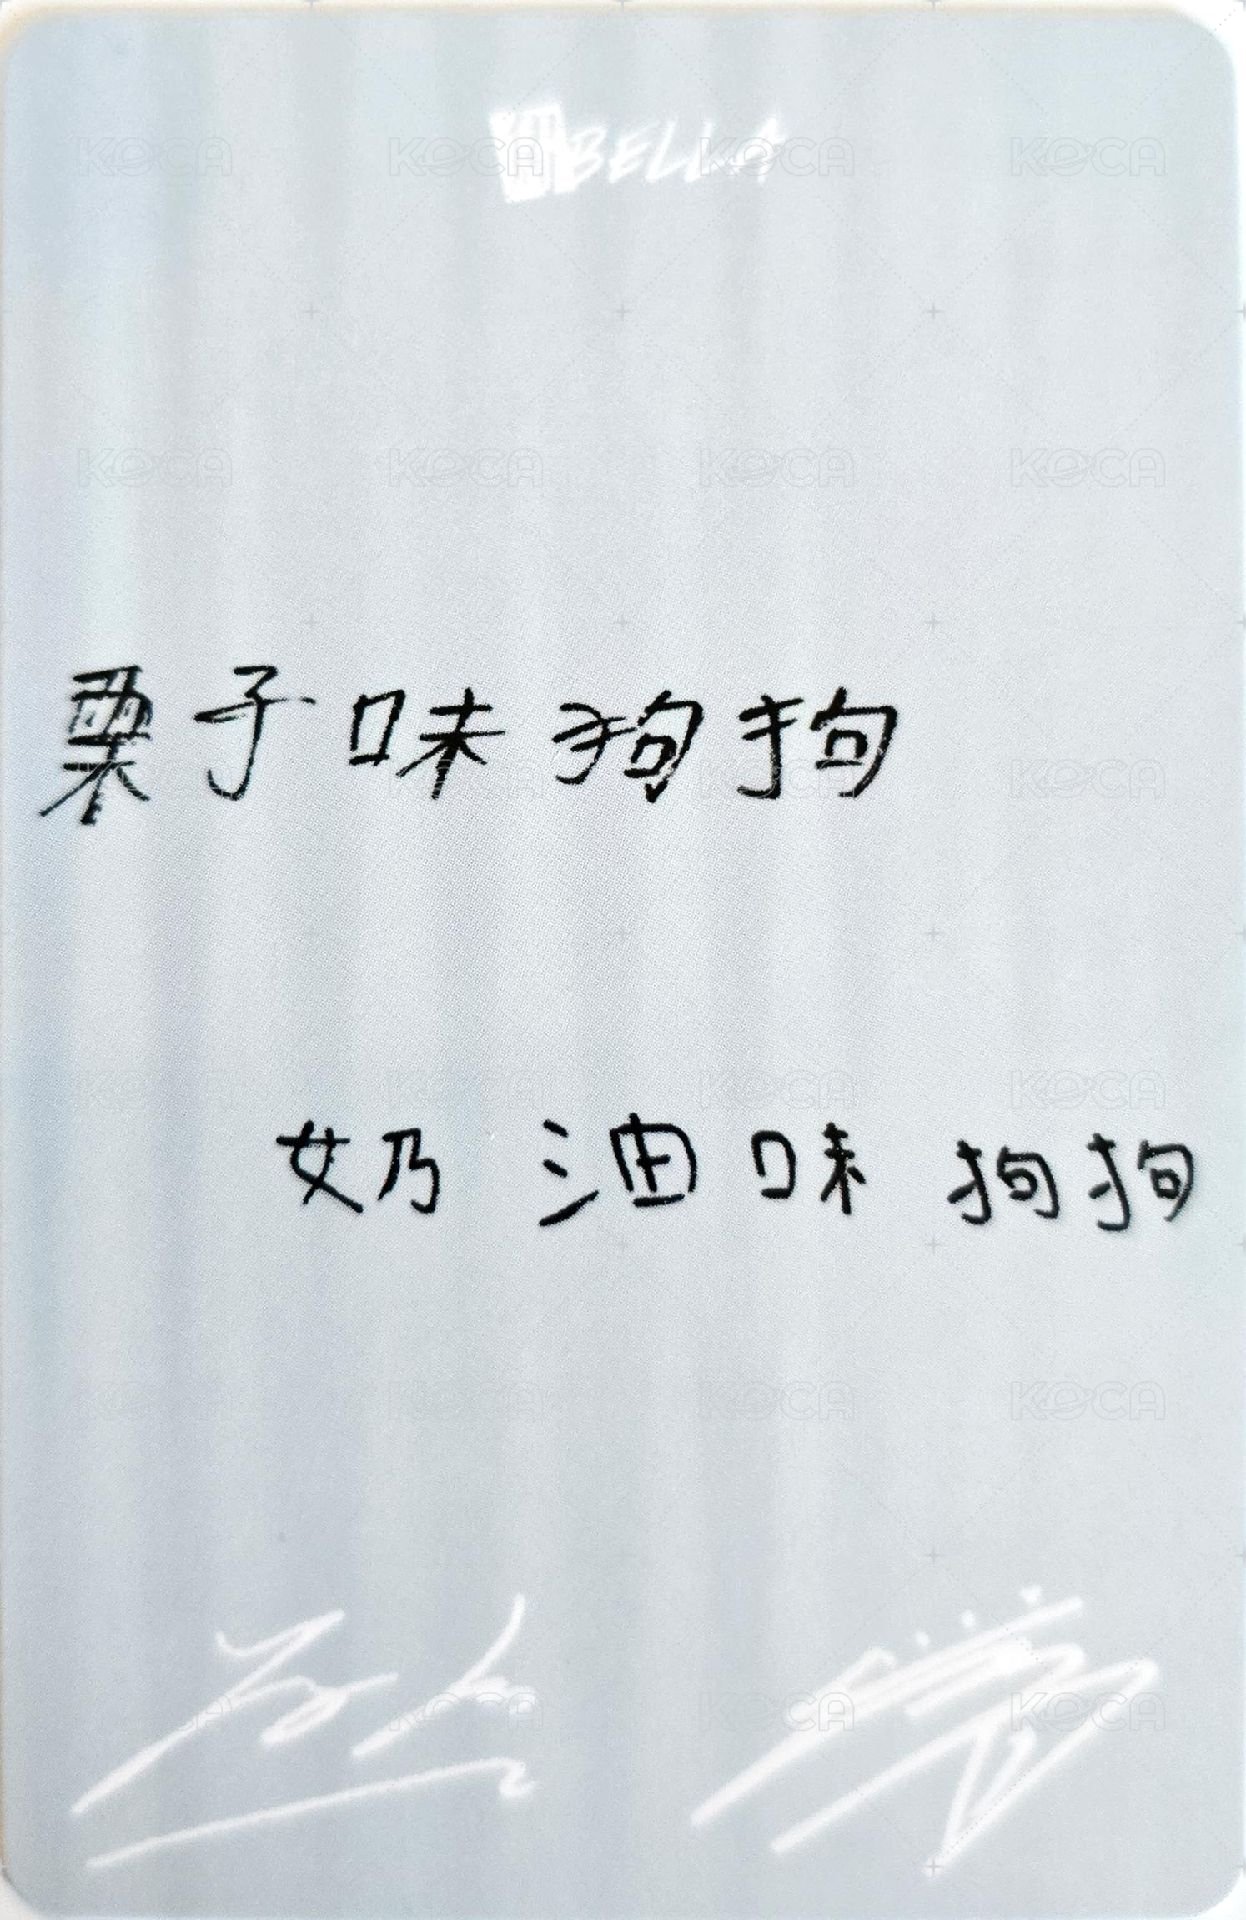 BELLA
栗子味狗狗
奶油味狗狗
KOCA